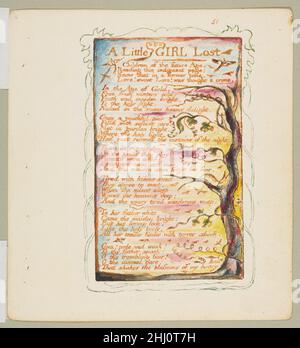 51
A Little GIRL Lost
Children of the future Age,
Reading this indignant page:
Know that in a former time
Love! sweet Love! was thought a crime.
In the Age of Gold,
Free from winters cold:
Youth and maiden bright,
To the holy light,
Naked in the sunny beams delight.
Once a youthful pair
Fill'd with softest care
Met in garden bright
Where the holy light
Had just removd the curtains of the night
Tired with kisses sweet
They agree to meet,
When the silent sleep
Waves o'er heavens deep;
And the weary tired wanderers weep.
To her father white
Came the maiden bright:
But his loving look,
Like the holy book
All her tender limbs with terror shook.
Ona! pale and weak!
To thy father speak:
O the trembling fear!
O the dismal care!
That shakes the blossoms of my hoary hair
alamy - 2HJ0T7H